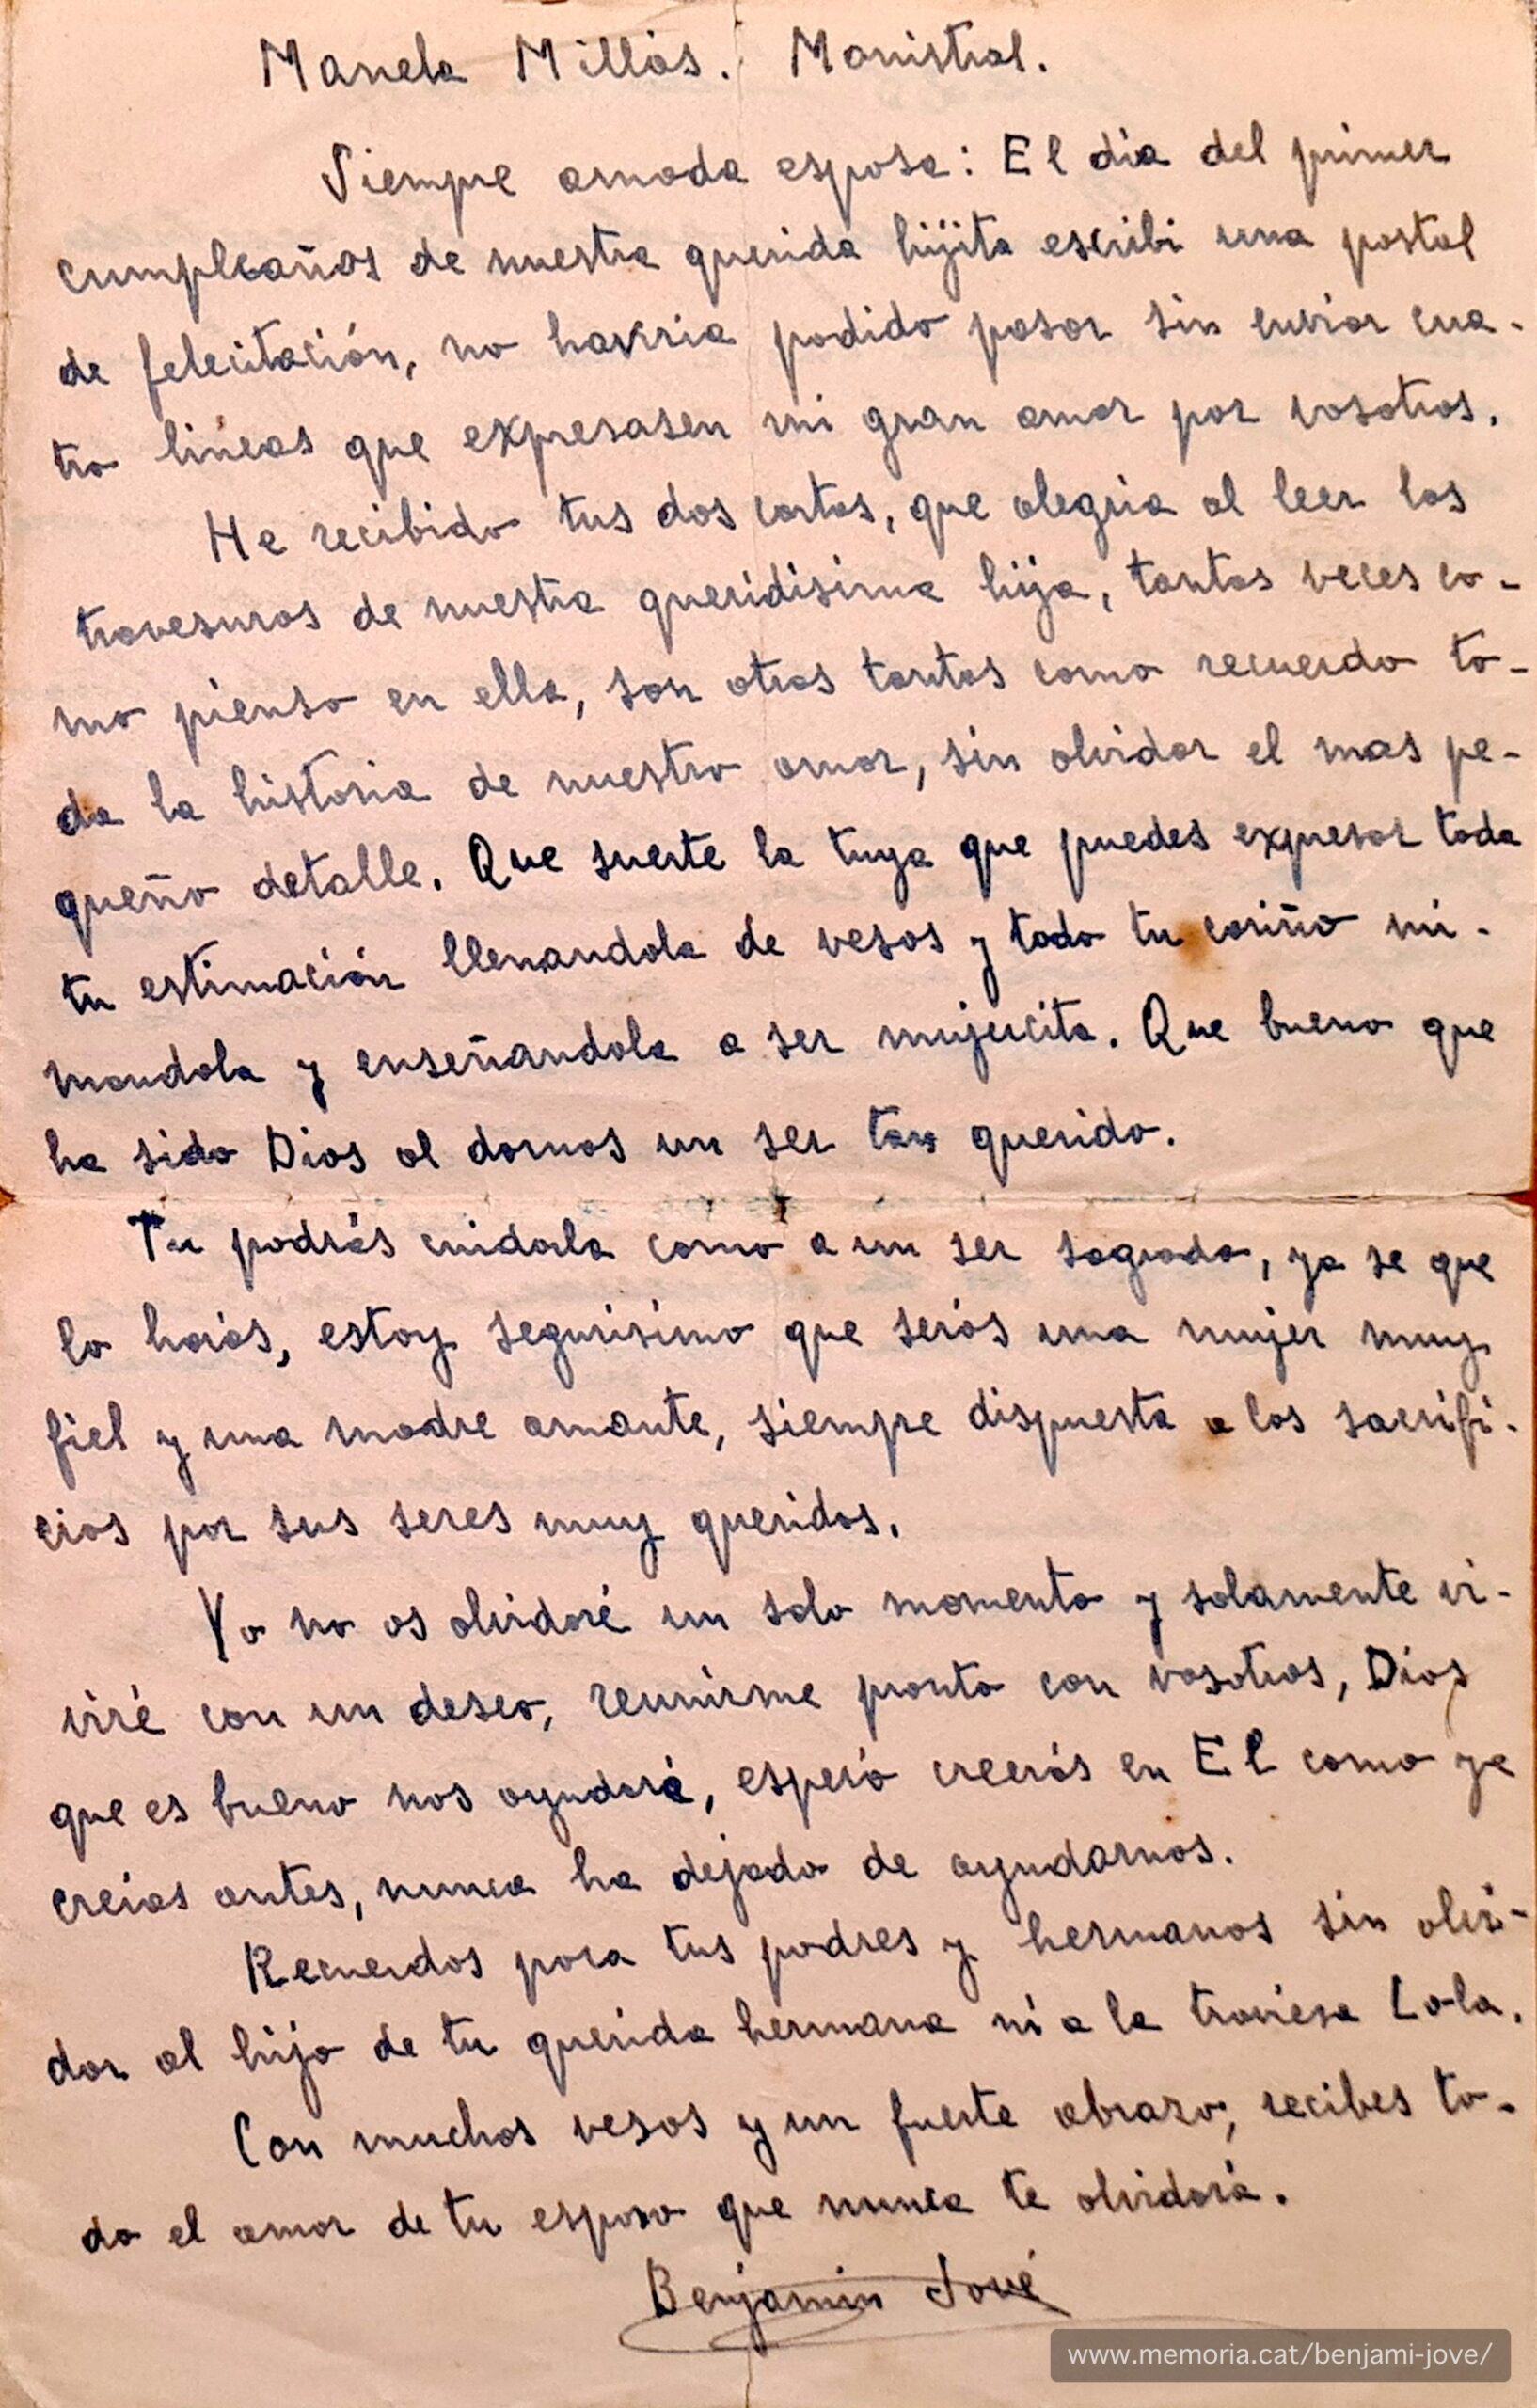 Manela Millás. Monistrol.
Siempre amada esposa: El dia del primer
cumpleaños de nuestra querida hijita escribi una postal
de felecitación, no havria podido pasar sin enviar cua-
tro lineas que expresasen mi gran amor por vosotros.
He recibido tus dos cartas, que alegria al leer las
travesuras de nuestra queridisima hija, tantas veces co-
mo pienso en ella, son otras tantas como recuerdo to-
da la historia de nuestro amor, sin olvidar el mas pe-
queño detalle. Que suerte la tuya que puedes expresar toda
tu estimación llenandola de vesos y todo tu cariño mi-
mandola y enseñandola a ser mujercita. Que bueno que
ha sido Dios al darnos un ser tan querido.
Tu podrás cuidarla como a un ser sagrado, ya se que
lo harás, estoy segurisimo que serás una mujer muy
fiel y una madre amante, siempre dispuesta a los sacrifi-
cios por sus seres muy queridos.
Yo no os olvidaré un solo momento y solamente vi-
viré con un deseo, reunirme pronto con vosotros, Dios
que es bueno nos ayudará, espero creerás en El como ya
creias antes, nunca ha dejado de ayudarnos.
Recuerdos para tus padres y hermanos sin olvi-
dar al hijo de tu querida hermana ni a la traviesa Lola.
Con muchos vesos y un fuerte abrazo, recibes to-
do el amor de tu esposo que nunca te olvidará.
Benjamin Jové
www.memoria.cat/benjami-jove/